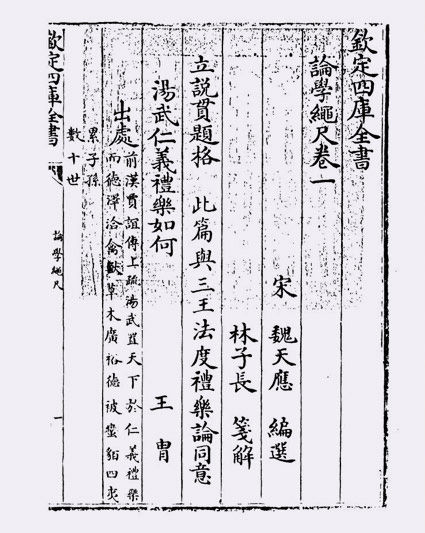 欽定四庫全書
論學繩尺卷一
宋 魏天應 編選
林子長 箋解
立說貫題格 此篇與三王法度禮樂論同意
湯武仁義禮樂如何 王胄
出處前漢賈誼傳上疏湯武置天下於仁義禮樂
而德澤洽禽獸草木廣裕德被蠻貊四夷
累子孫
數十世
欽定四庫全書
論學繩尺
一